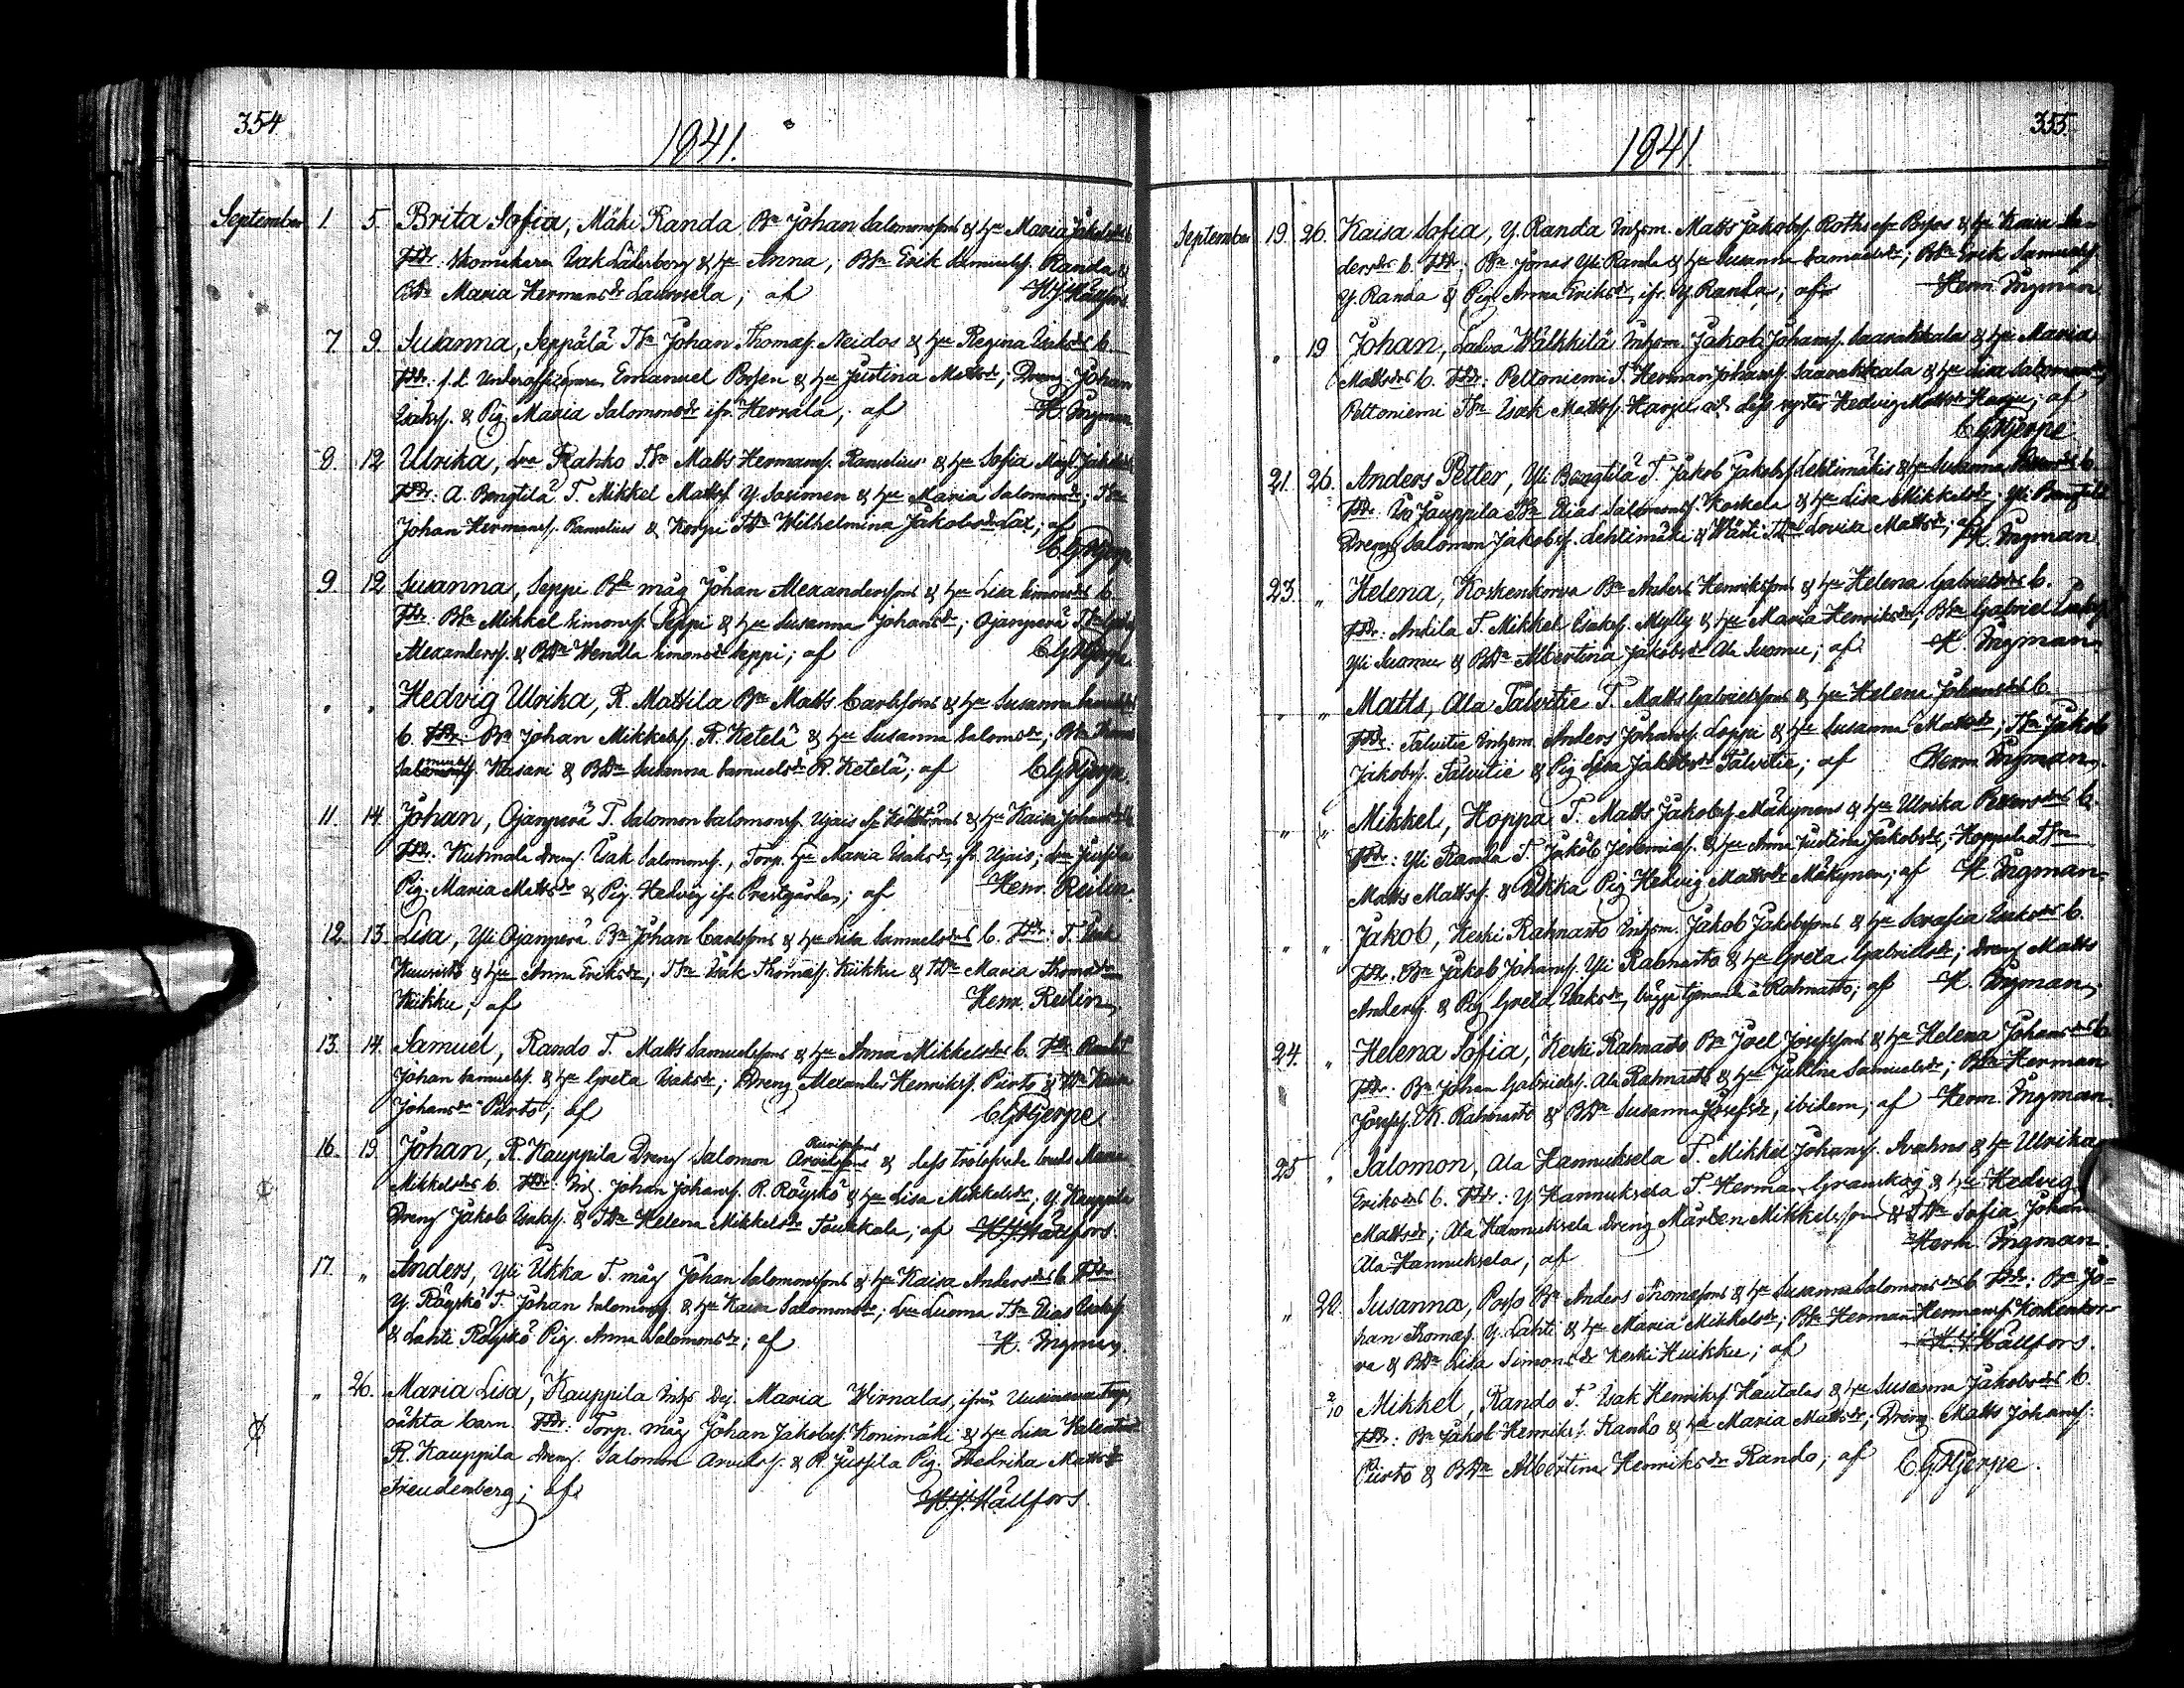 354
1841.
September 1. 5. Brita Sofia, Mäki Randa Bn Johan Salomonssons & hu Maria Jakobsdrs b.
Fddr: Skomakaren Isak Säterborg & hu Anna; Bsn Erik Samuelss. Randa &
Bdn Maria Hermansdr Laurosela; af H. J. Hällfors
7. 9. Susanna, Seppälä Tsn Johan Thomass. Neidos & hu Regina Isaksdrs b.
Fddr: f.d. Underofficeraren Emanuel Bosen & hu Justina Mattsdr; Dreng Johan
Isakss. & Pig. Maria Salomonsdr ifr. Herrala; af H. Ingman
8. 12 Ulrika, Lra Rahko Tsn Matts Hermanss. Ramelius & hu Sofia
Fddr: A. Bengtilä T. Mikkel Mattss. Y. Sarimen & hu Maria Salomonsdr; Tsn
Johan Hermanss. Ramelius & Korpi Tdn Wilhelmina Jakobsdr Lax; af
C G Hjerpe
9 12 Susanna, Seppi Bn måg Johan Alexanderssons & hu Lisa Simonsdrs b.
Fddr: Bsn Mikkel Simonss. Seppi & hu Susanna Johansdr; Ojanperä Tsn
Alexanderss. & Bdn Wendla Simonsdr Seppi; af C G Hjerpe
" " Hedvig Ulrika, R. Mattila Bn Matts Carlssons & hu Susanna Samuelsdrs
b. Fddr: Bn Johan Mikkelss. R. Ketelä & hu Susanna Salomsdr; Bsn Thomas
Kasari & Bdn Susanna Samuelsdr R. Ketelä; af C G Hjerpe
11. 14. Johan, Ojanperä T. Salomon Salomonss. Ujais & hu Kaisa Johansdrs
Fddr: Kuhmala dreng. Isak Salomonss., Torp. hu Maria Isaksdr, ifr Ujais; Lra Jussila
Pig. Maria Mattsdr & Pig. Hedvig ifr. Prestgården; af Henr. Reilin.
12. 13. Lisa, Yli Ojanperä Bn Johan Carlssons & hu Lisa Samuelsdrs b. Fddr: T. Isak
Kuuristo & hu Anna Eriksdr; Tsn Isak Thomass. Kiikku & Tdn Maria Thomasdr
Kiikku; af Henr. Reilin
13. 14. Samuel, Rando T. Matts Samuelssons & hu Anna Mikkelsdrs b. Fddr: Rando T
Johan Samuelss. & hu Greta Isaksdr; Dreng Alexander Henrikss. Piirto & Tdn Kaisa
Johansdr Piirto; af C G Hjerpe
16. 19. Johan, R. Kauppila Dreng Salomon Arvidssons & dess trolofvade brud Maria
Mikkelsdrs b. Fddr: Inh. Johan Johanss. R. Röyskö & hu Lisa Mikkelsdr; Y. Kauppila
Dreng Jakob Isakss. & Tdn Helena Mikkelsdr Toukkala; af H. J. Hällfors.
17. " Anders, Yli Ukka T. måg Johan Salomonssons & hu Kaisa Andersdrs b. Fddr
Y. Röyskö T. Johan Salomonss. & hu Kaisa Salomonsdr; Lra Luoma Tsn Elias Isakss.
& Lahti Röyskö Pig. Anna Salomonsdr; af H. Ingman.
" 26. Maria Lisa, Kauppila Inhs Dej. Maria Wirnalas, ifrån Uusimaa
oäkta barn. Fddr: Torp. måg Johan Jakobss. Konimäki & hu Lisa
R. Kauppila dreng. Salomon Arvidss. & R. Jussila Pig. Fredrika Mattsdr
Freudenberg; af H. J. Hällfors.
355.
1841
September 19. 26. Kaisa Sofia, Y. Randa Inhsm. Matts Jakobss. Roths & hu Kaisa
dersdrs b. Fddr: Bn Jonas Yli Randa & hu Susanna Samuelsdr; Bsn Erik Samuelss.
Y. Randa & Pig. Anna Eriksdr, ifr. Y. Randa; af Herm. Ingman
" 19 Johan, Latva Wälkkilä Inhsm. Jakob Johanss. Saarakkalas & hu Maria
Mattsdrs b. Fddr: Peltoniemi T. Herman Johanss. Saarakkala & hu Lisa Salomonsdr;
Peltoniemi Tsn Isak Mattss. Harju och dess syster Hedvig Mattsdr Harju; af
C G Hjerpe
21. 26. Anders Petter, Yli Bengtilä T. Jakob Jakobss. Lehtimäkis & hu Susanna b.
Fddr. Iso Jauppila Bn Elias Salomonss. Koskela & hu Lisa Mikkelsdr; Yli Bengtilä
Dreng Salomon Jakobss. Lehtimäki & Wäri Tdn Lovisa Mattsdr; af H. Ingman
23. " Helena, Koskenkorva Bn Anders Henrikssons & hu Helena Gabrielsdrs b.
Fddr: Antila T. Mikkel Isakss. Mylly & hu Maria Henriksdr; Bsn Gabriel
Yli Suomu & Bdn Albertina Jakobsdr Ala Suomu; af H. Ingman.
" " Matts, Ala Talvitie T. Matts Gabrielssons & hu Helena Johansdrs b.
Fddr: Talvitie Inhsm. Anders Johanss. Loppi & hu Susanna Mattsdr; Tsn Jakob
Jakobss. Talvitie & Pig Lisa Jakobsdr Talvitie; af Herm. Ingman.
" " Mikkel, Hoppa T. Matts Jakobss. Mäkynens & hu Ulrika b.
Fddr: Yli Randa T. Jakob Jeremiass. & hu Anna Justina Jakobsdr; Hoppala Tsn
Matts Mattss. & Ukka Pig Hedvig Mattsdr Mäkynen; af H. Ingman
" " Jakob, Keski Rahnasto Inhsm. Jakob Jakobssons & hu Serafia Isaksdrs b.
Fddr. Bn Jakob Johanss. Yli Rahnasto & hu Greta Gabrielsdr; dreng Matts
Anderss. & Pig Greta Isaksdr, bägge tjenande å Rahnasto; af H. Ingman
24. " Helena Sofia, Keski Rahnasto Bn Joel Josefssons & hu Helena Johansdrs b.
Fddr: Bn Johan Gabrielss. Ala Rahnasto & hu Juliina Samuelsdr; Bsn Herman
Josefss. K. Rahnasto & Bdn Susanna Josefsdr, ibidem; af Herm. Ingman.
25 " Salomon, Ala Hannuksela T. Mikkel Johanss. Svahns & hu Ulrika
Eriksdrs b. Fddr: Y. Hannuksela T. Herman Granskog & hu Hedvig
Mattsdr; Ala Hannuksela dreng Mårten Mikkelsson & Tdn Sofia Johans
Ala Hannuksela; af Herm. Ingman
" 28. Susanna, Posso Bn Anders Thomassons & hu Susanna Salomonsdrs b. Fddr: Bn Jo-
han Thomass. Y. Lahti & hu Maria Mikkelsdr; Bsn Herman Hermanss. Koskenkor-
va & Bdn Lisa Simonsdr Keski Huikku; af H. J. Hällfors.
" 2/10 Mikkel, Rando T. Isak Henrikss. Hautalas & hu Susanna Jakobsdrs b.
Fddr: Bn Jakob Henrikss. Rando & hu Maria Mattsdr; Dreng Matts Johanss.
Piirto & Bdn Albertina Henriksdr Rando; af C G Hjerpe.